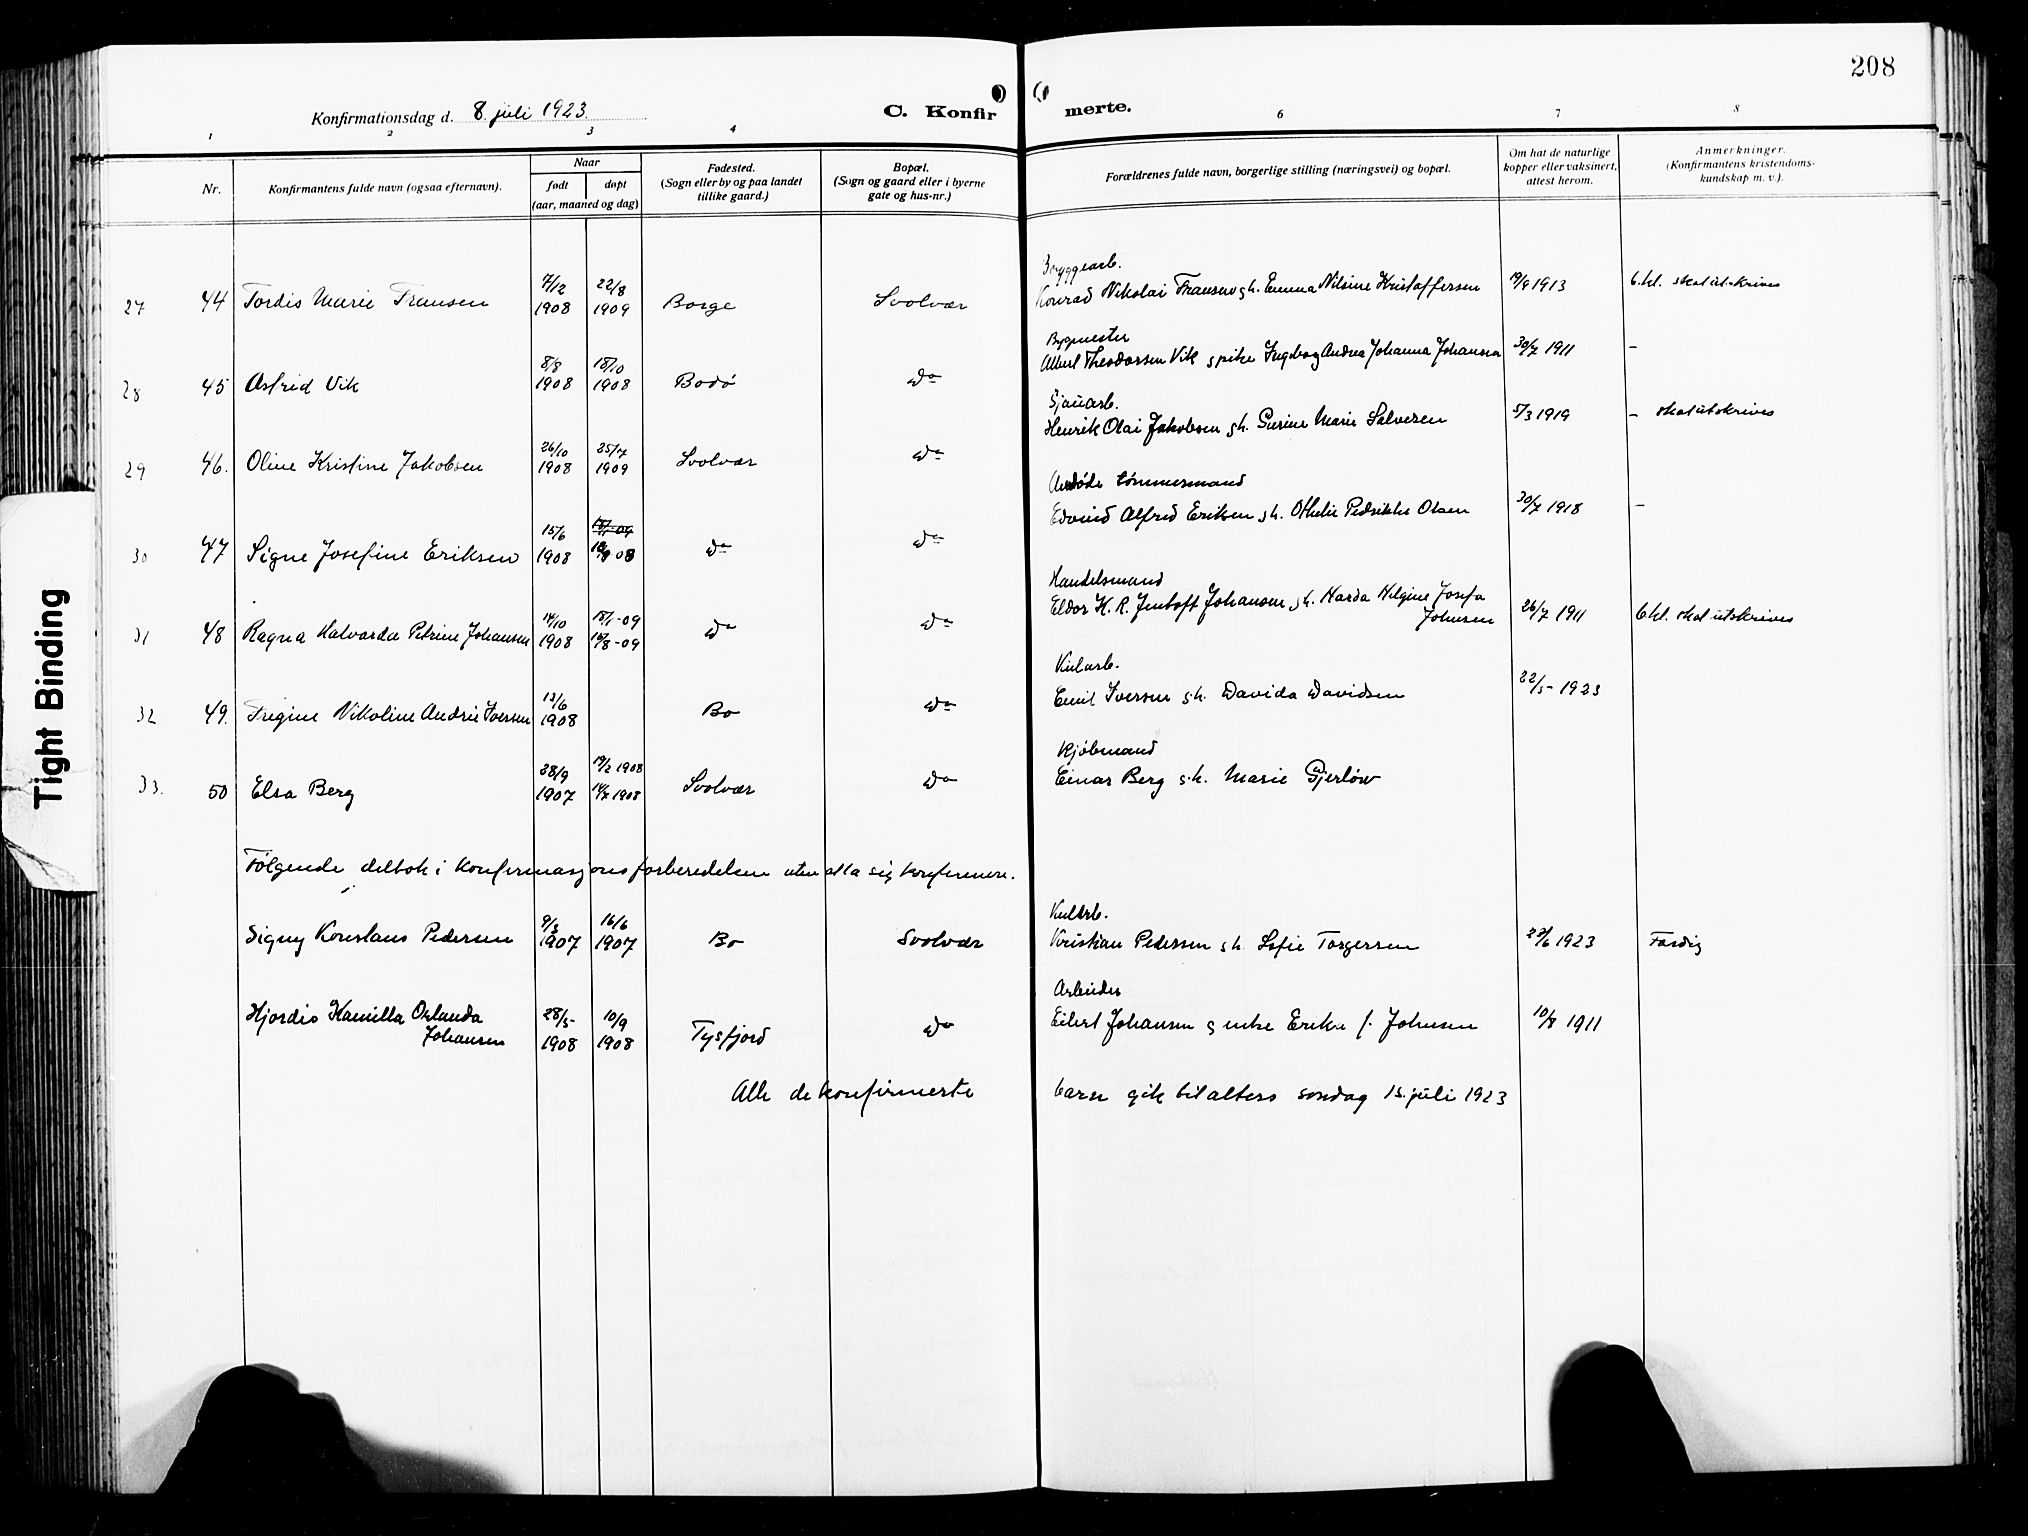 208
Konfirmationsdag d. 8. juli 1923.
C. Konfir merte.
1 2 3 4 6 7 8
Nr.
Konfirmantens fulde navn (ogsaa efternavn).
Naar
født døpt
(aar, maaned og dag)
Fødested.
(Sogn eller by og paa landet
tillike gaard.)
Bopæl.
(Sogn og gaard eller i byerne
gate og hus-nr.)
Forældrenes fulde navn, borgerlige stilling (næringsvei) og bopæl.
Om hat de naturlige
kopper eller vaksinert,
attest herom.
Anmerkninger.
(Konfirmantens kristendoms-
kundskap m. v.).
Bryggearb.
7/12 22/8
27 44 Tordis Marie Fransen 1908 1909 Borge Svolvær Konrad Nikolai Fransen g. h. Emma Nilsine Kristoffersen 19/9 1913 6. kl. skal utskrives
Bygmester
8/8 18/10
28 45 Astrid Vik 1908 1908 Bodø do Albert Theodorsen Vik g pike Ingeborg Andrea Johanna Johansen 30/7 1911 –
Sjauarb.
26/10 25/7
29 46. Oline Kristine Jakobsen 1908 1909 Svolvær do Henrik Olai Jakobsen g. h. Gurine Marie Salvesen 5/3 1919 – skal utskrives
Avdøde tømmermand
15/6
30 47 Signe Josefine Eriksen 1908 do do Edvind Alfred Eriksen g. h. Othelie Pedrikke Olsen 30/7 1918 –
Handelsmand
14/10 18/1-09
31 48 Ragna Halvarda Petrine Johansen 1908 15/8-09 do do Eldor H. R. Jentoft Johansen g. h. Harda Helgine Josefa
Johnsen 26/7 1911 6 kl. skal utskrives
Kularb.
13/6
32 49. Fregine Nikoline Andrie Iversen 1908 Bo do Emil Iversen g. h. Davida Davidsen 22/5- 1923
Kjøbmand
28/9 19/2 1908
33. 50 Elsa Berg 1907 14/7 1908 Svolvær do Einar Berg g. h. Marie Gjerløw
Følgende deltok i konfirmasjonsforberedelsen uten at la sig konfirmere.
Kularb.
9/3 16/6
Signy Konstans Pedersen 1907 1907 Bo Svolvær Kristian Pedersen g h Sofie Torgersen 22/6 1923 Færdig
Arbeider
Hjordis Kamilla Orlanda 28/5- 10/9
Johansen 1908 1908 Tysfjord do Eilert Johansen g enke Erika f. Johnsen 10/8 1911
Alle de konfirmerte barn gik til alters søndag 15. juli 1923
Tight Binding